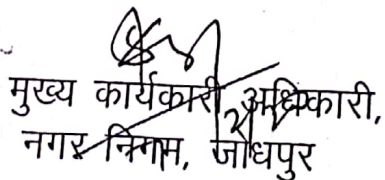 मुख्य कार्यकारी अधिकारी,
नगर निगम, जोधपुर